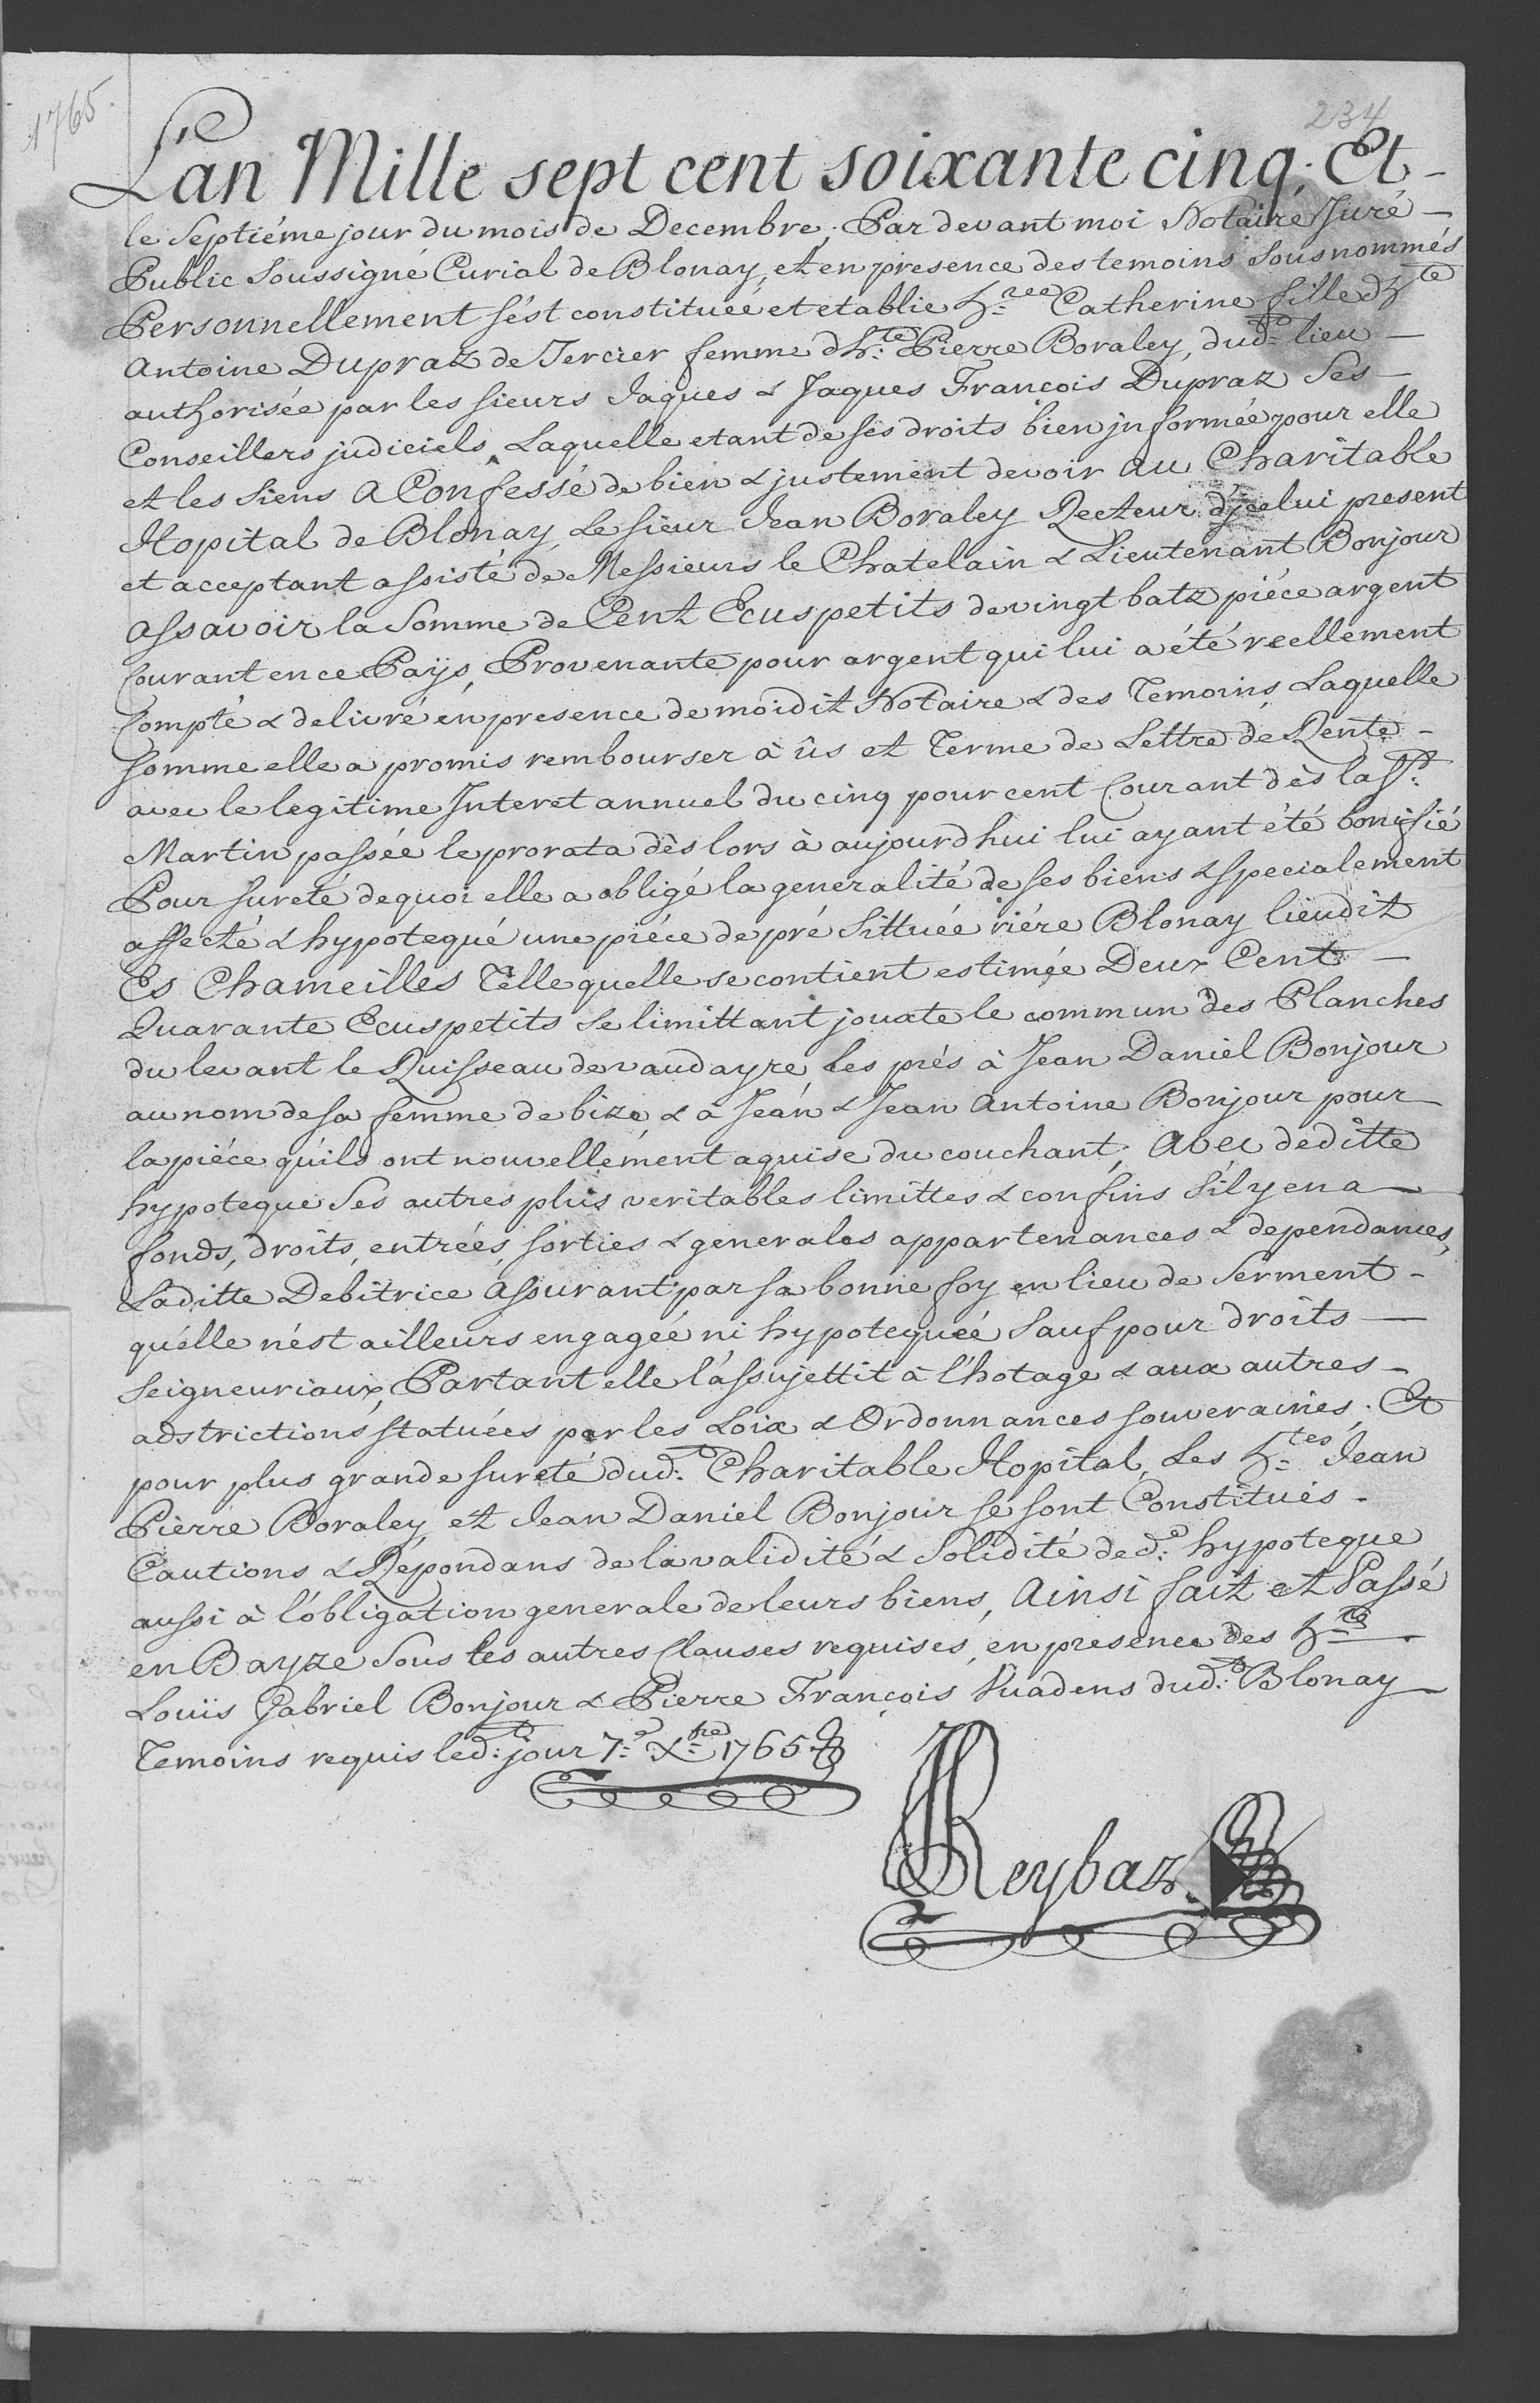 1765.
234
L'an Mille sept cent soixante cinq; Et
le Septiéme jour du mois de Decembre; Par devant moi Notaire Juré
Public Soussigné Curial de Blonay, et en presence des temoins Sousnommés
Personnellement s'ést constituée et etablie h:rée Catherine fille d'h:te
Antoine Dupraz de Tercier femme d'h:te Pierre Boraley, dud:t lieu
authorisée par les sieurs Jaques & Jaques François Dupraz Ses
Conseillers judiciels, Laquelle etant de ses droits bien jnformée pour elle
et les Siens a Confessé de bien & justement devoir au Charitable
Hopital de Blonay, Le sieur Jean Boraley Recteur d'jcelui present
et acceptant assisté de Messieurs le Chatelain & Lieutenant Bonjour
Assavoir la Somme de Cent Ecus petits de vingt batz piéce argent
Courant en ce Païs, Provenante pour argent qui lui a été reellement
Compté & delivré en presence de moidit Notaire & des Temoins, Laquelle
somme elle a promis rembourser à ûs et Terme de Lettre de Rente
avec le legitime Interet annuel du cinq pour cent Courant dès la S:t
Martin passée le prorata dès lors à aujourdhui lui ayant été bonifié
Pour sureté dequoi elle a obligé la generalité de ses biens & specialement
affecté & hypotequé une piéce de pré Sittuée riére Blonay lieudit
Es Chameilles Telle quelle se contient estimée Deux Cent
Quarante Ecus petits Se limittant jouxte le commun des Planches
du levant le Ruisseau devaudayre les prés à Jean Daniel Bonjour
au nom de sa femme de bize, & à Jean & Jean Antoine Bonjour pour
la piéce qu'ils ont nouvellement aquise du couchant; Avec deditte
hypoteque Ses autres plus veritables limittes & confins S'il y en a
fonds, droits, entrées, sorties & generales appartenances & dependances,
Laditte Debitrice assurant par sa bonne foy en lieu de Serment
qu'elle n'ést ailleurs engagée ni hypotequée Sauf pour droits
Seigneuriaux, Partant elle l'assujettit à l'hotage & aux autres
adstrictions statuées par les Loix & Ordonnances souveraines; Et
pour plus grande sureté dud:t Charitable Hopital, Les h:tes Jean
Pierre Boraley et Jean Daniel Bonjour se sont Constitués
Cautions & Répondans de la validité & Solidité de d:e hypoteque
aussi à l'obligation generale de leurs biens, Ainsi fait et Passé
en Bayze Sous les autres Clauses requises, en presence des h:tes
Louïs Gabriel Bonjour & Pierre François Vuadens dud:t Blonay
Temoins requis led:t jour 7:e X:bre 1765
Reybaz